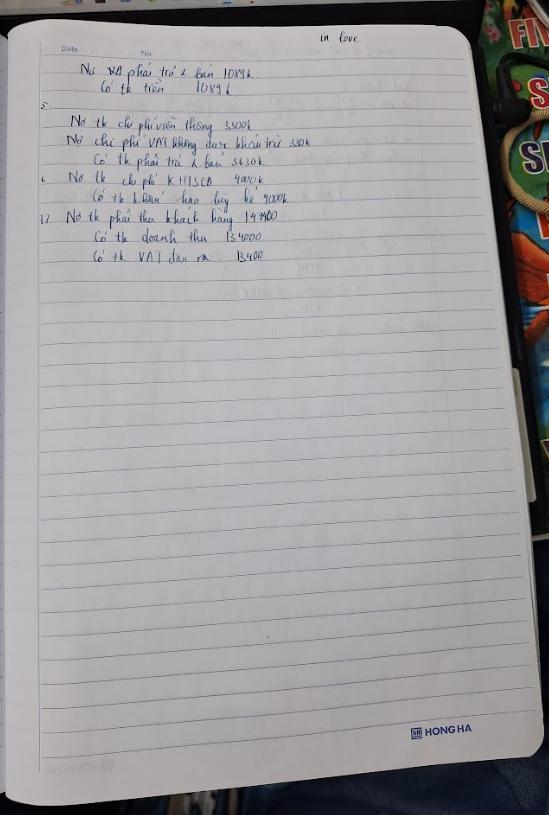 in love
Date No.
Nợ phải trả k bán 1089k
Có tk tiền 1089k
5.
Nợ tk chi phí viễn thông 3300k
Nợ chi phí VAT không được khấu trừ 330k
Có tk phải trả k bán 3630k
6 Nợ tk chi phí KHTSCĐ 4000k
Có tk khấu hao lũy kế 4000k
Nợ tk phải thu khách hàng 147400
Có tk doanh thu 134000
Có tk VAT đầu ra 13400
HONG HA
FI
S